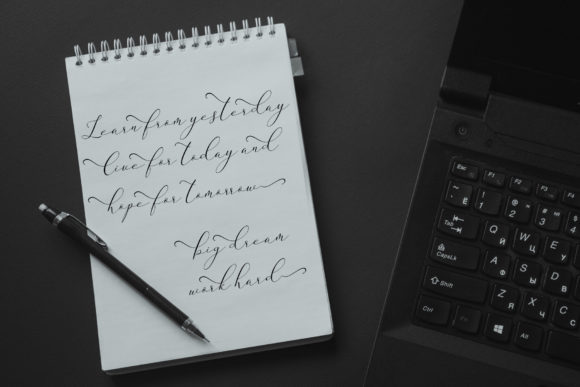 Learn from yesterday
live for today and
hope for tomorrow
big dream
work hard
Esc F1 F2 F3 F4
Ё 1 2 3
Tab Q Й W Ц
CapsLk A Ф S
Shift Z Я X Ч
Ctrl Alt